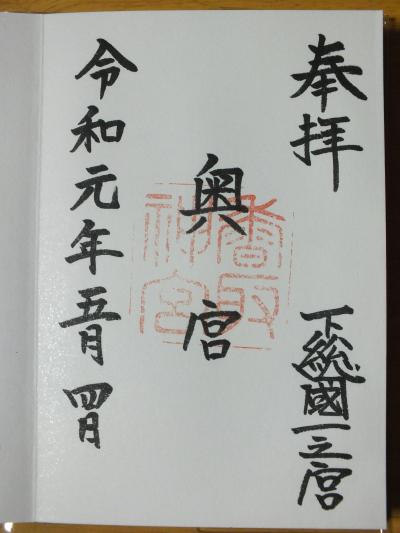 奉拝
下総國一之宮
奥宮
香取神宮
令和元年五月四日